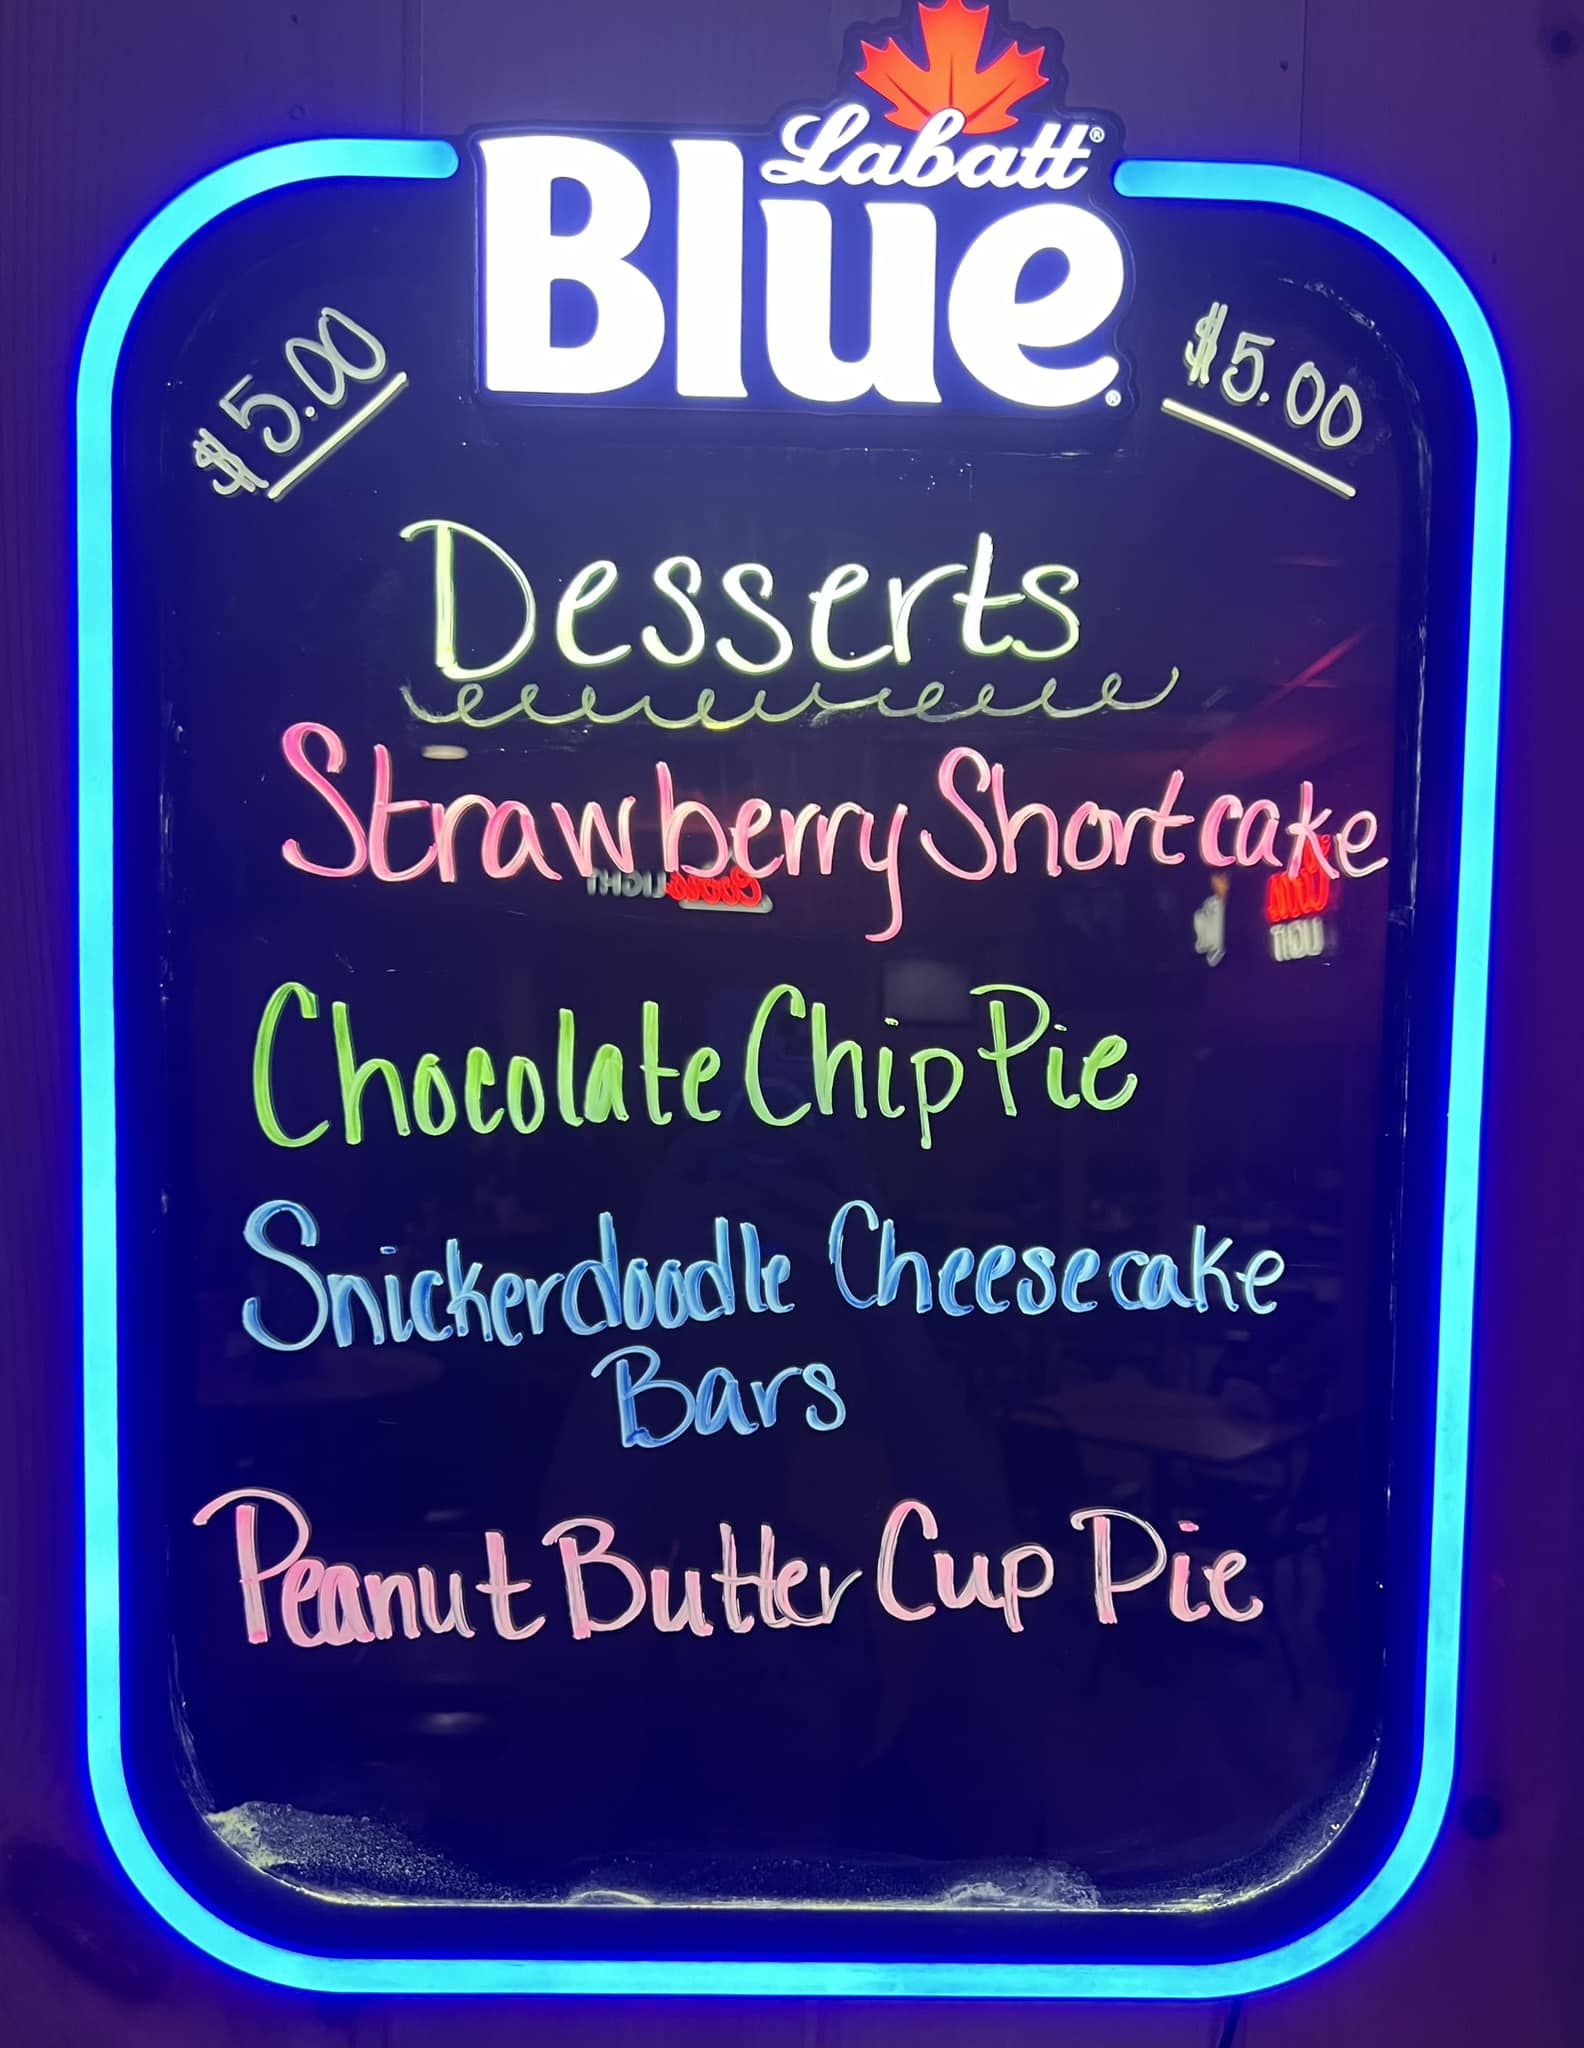 Labatt®
Blue®
$5.00
$5.00
Desserts
Strawberry Shortcake
Coors LIGHT
Coors
LIGHT
Chocolate Chip Pie
Snickerdoodle Cheesecake
Bars
Peanut Butter Cup Pie